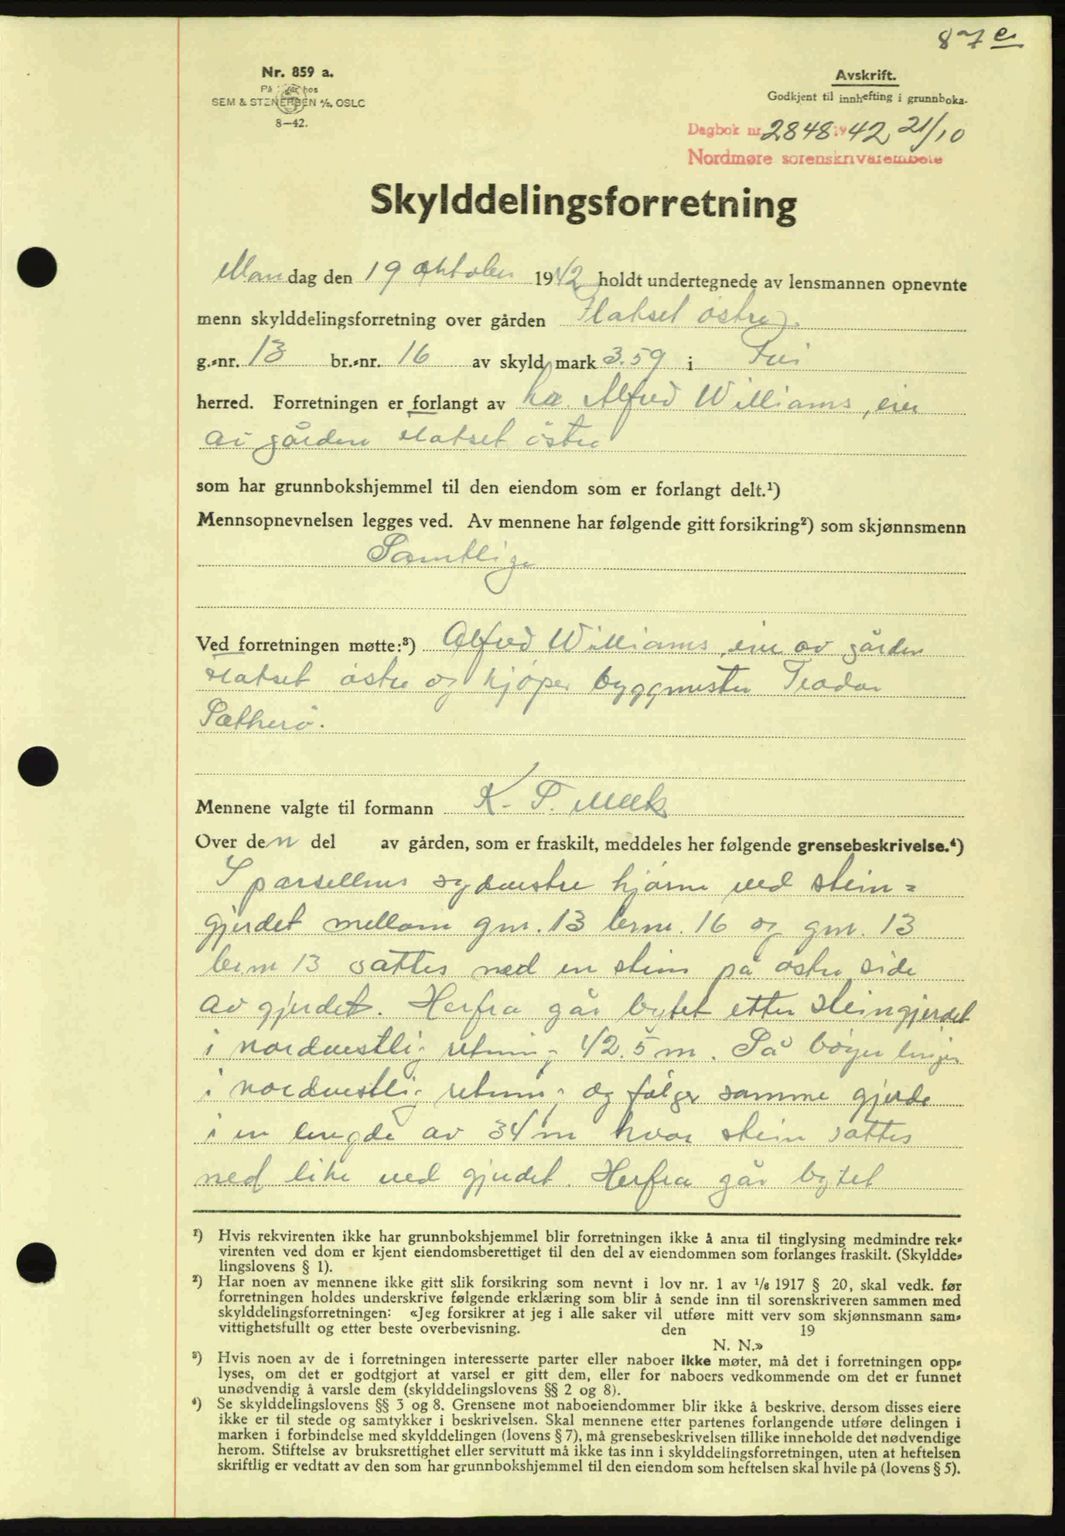 87e
Nr. 859 a.
På lager hos
SEM & STENERSEN A/S, OSLO
8—42.
Avskrift.
Godkjent til innhefting i grunnboka.
Dagbok nr. 2848 1942, 21/10
Nordmøre sorenskriverembete
Skylddelingsforretning
Mandag den 19 oktober 1942 holdt undertegnede av lensmannen opnevnte
menn skylddelingsforretning over gården Flatset østre
g.-nr. 13 br.-nr. 16 av skyld mark 3.59 i Frei
herred. Forretningen er forlangt av hr. Alfred Williams, eier
av gården Flatset östre
som har grunnbokshjemmel til den eiendom som er forlangt delt.¹)
Mennsopnevnelsen legges ved. Av mennene har følgende gitt forsikring²) som skjønnsmenn
Samtlige
Ved forretningen møtte:³) Alfred Williams, eier av gården
Flatset östre og kjöper byggmester Teodor
Sætherö.
Mennene valgte til formann K. T. Meek
Over den del av gården, som er fraskilt, meddeles her følgende grensebeskrivelse.⁴)
I parsellens sydvestre hjörne ved stein=
gjerdet mellom gnr. 13 brnr. 16 og gnr. 13
brnr 13 sattes ned en stein på östre side
av gjerdet. Herfra går bytet etter steingjerdet
i nordvestlig retning 42.5 m. Så böyer linjen
i nordvestlig retning og fölger samme gjerde
i en lengde av 34 m hvor stein sattes
ned like ved gjerdet. Herfra går bytet
¹) Hvis rekvirenten ikke har grunnbokshjemmel blir forretningen ikke å anta til tinglysing medmindre rek-
virenten ved dom er kjent eiendomsberettiget til den del av eiendommen som forlanges fraskilt. (Skyldde-
lingslovens § 1).
²) Har noen av mennene ikke gitt slik forsikring som nevnt i lov nr. 1 av 1/6 1917 § 20, skal vedk. før
forretningen holdes underskrive følgende erklæring som blir å sende inn til sorenskriveren sammen med
skylddelingsforretningen: «Jeg forsikrer at jeg i alle saker vil utføre mitt verv som skjønnsmann sam-
vittighetsfullt og etter beste overbevisning. den 19
N. N.»
³) Hvis noen av de i forretningen interesserte parter eller naboer ikke møter, må det i forretningen opp-
lyses, om det er godtgjort at varsel er gitt dem, eller for naboers vedkommende om det er funnet
unødvendig å varsle dem (skylddelingslovens §§ 2 og 8).
⁴) Se skylddelingslovens §§ 3 og 8. Grensene mot naboeiendommer blir ikke å beskrive, dersom disses eiere
ikke er til stede og samtykker i beskrivelsen. Skal mennene etter partenes forlangende utføre delingen i
marken i forbindelse med skylddelingen (lovens § 7), må grensebeskrivelsen tillike inneholde det nødvendige
herom. Stiftelse av bruksrettighet eller servitutt må ikke tas inn i skylddelingsforretningen, uten at heftelsen
skriftlig er vedtatt av den som har grunnbokshjemmel til den eiendom som heftelsen skal hvile på (lovens § 5).